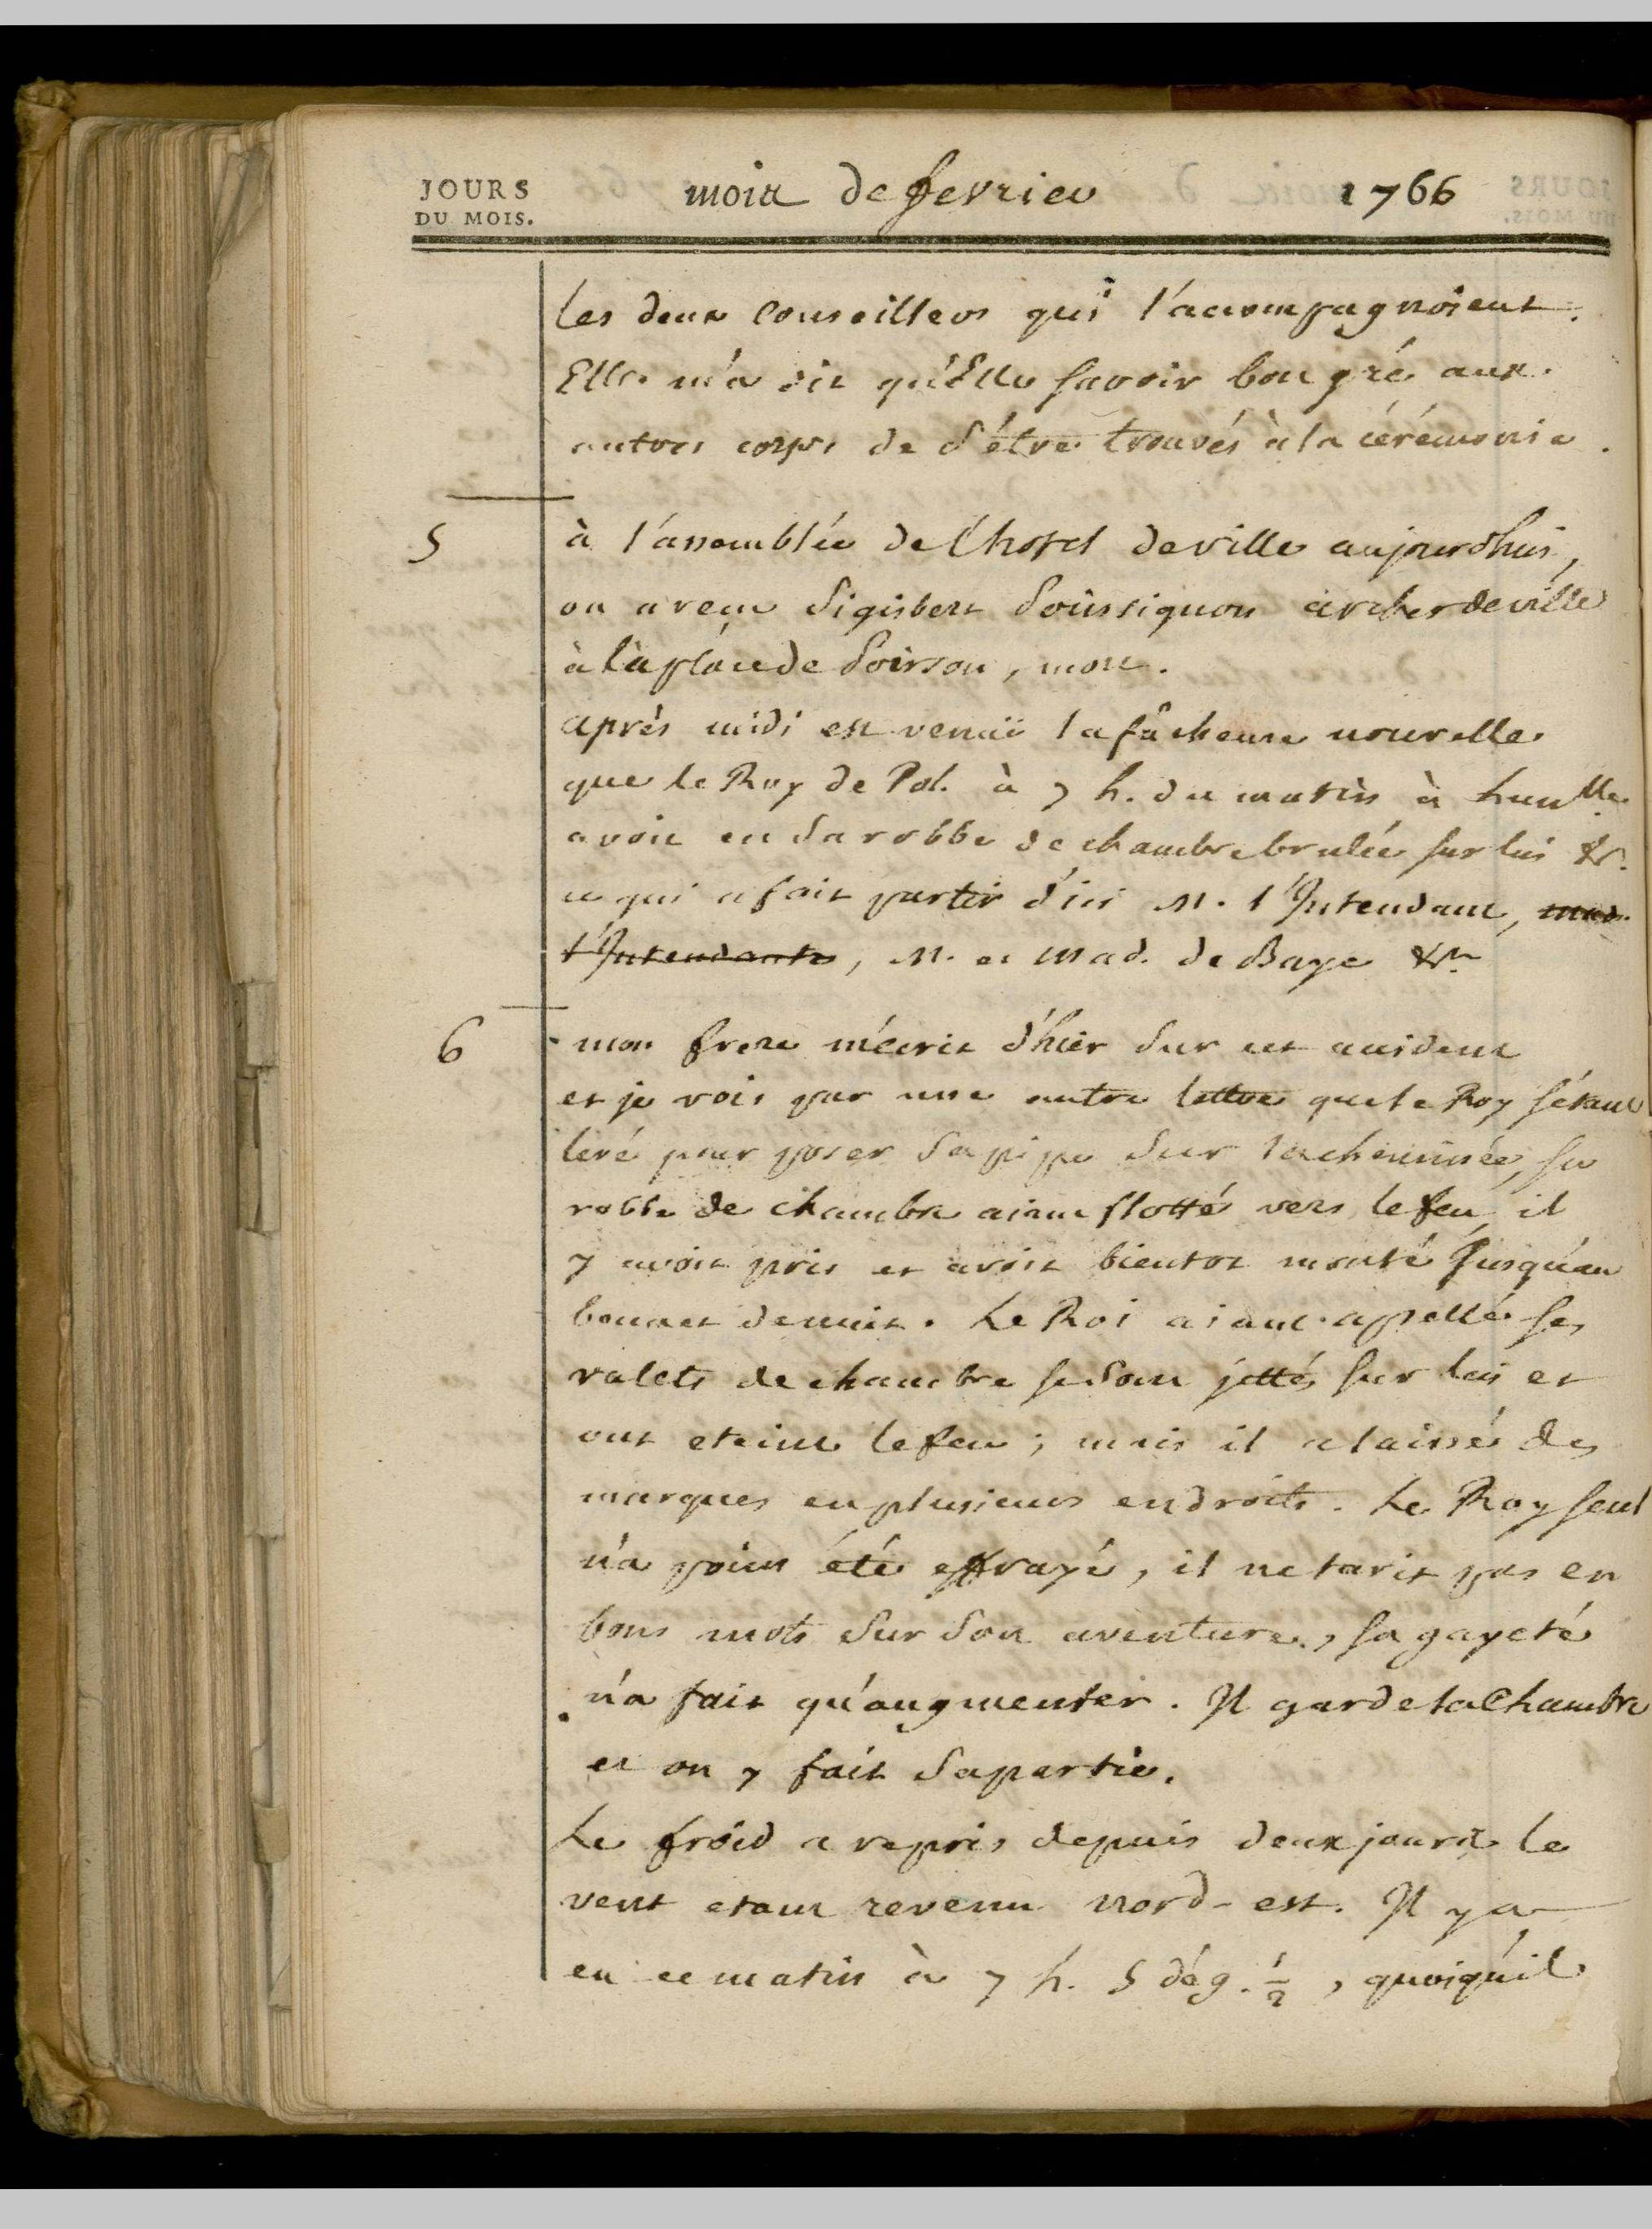 JOURS
DU MOIS.
mois de fevrier 1766
les deux Conseillers qui l'accompagnoient.
Elle m'a dit qu'Elle savoit bon gré aux
autres corps de s'être trouvés à la cérémonie.
5 à l'assemblée de l'hotel de ville aujourdhui,
on a reçu Sigisbert Soüssignon archer de ville
à la place de Poirson, mort.
après midi est venuë la fâcheuse nouvelle
que le Roy de Pol. à 7 h. du matin à Lun.lle
avoit eu sa robbe de chambre brulée sur lui &c.
ce qui a fait partir d'ici M. l'Intendant, mad.
l'Intendante, M. et Mad. de Baye &c.
6 mon frere m'écrit d'hier sur cet accident
et je vois par une autre lettre que le Roy s'étant
levé pour poser sa pipe sur la cheminée, sa
robbe de chambre aiant flotté vers le feu, il
y avoit pris et avoit bientot monté jusqu'au
bonnet de nuit. Le Roi aiant appellé ses
valets de chambre se sont jettés sur lui et
ont eteint le feu; mais il a laissé des
marques en plusieurs endroits. Le Roy seul
n'a point été effrayé, il ne tarit pas en
bons mots sur son aventure, sa gayeté
n'a fait qu'augmenter. Il garde la Chambre
et on y fait sa partie.
Le froid a repris depuis deux jours le
vent etant revenu nord-est. Il y a
eu ce matin à 7 h. 5 dég. 1/2, quoiqu'il